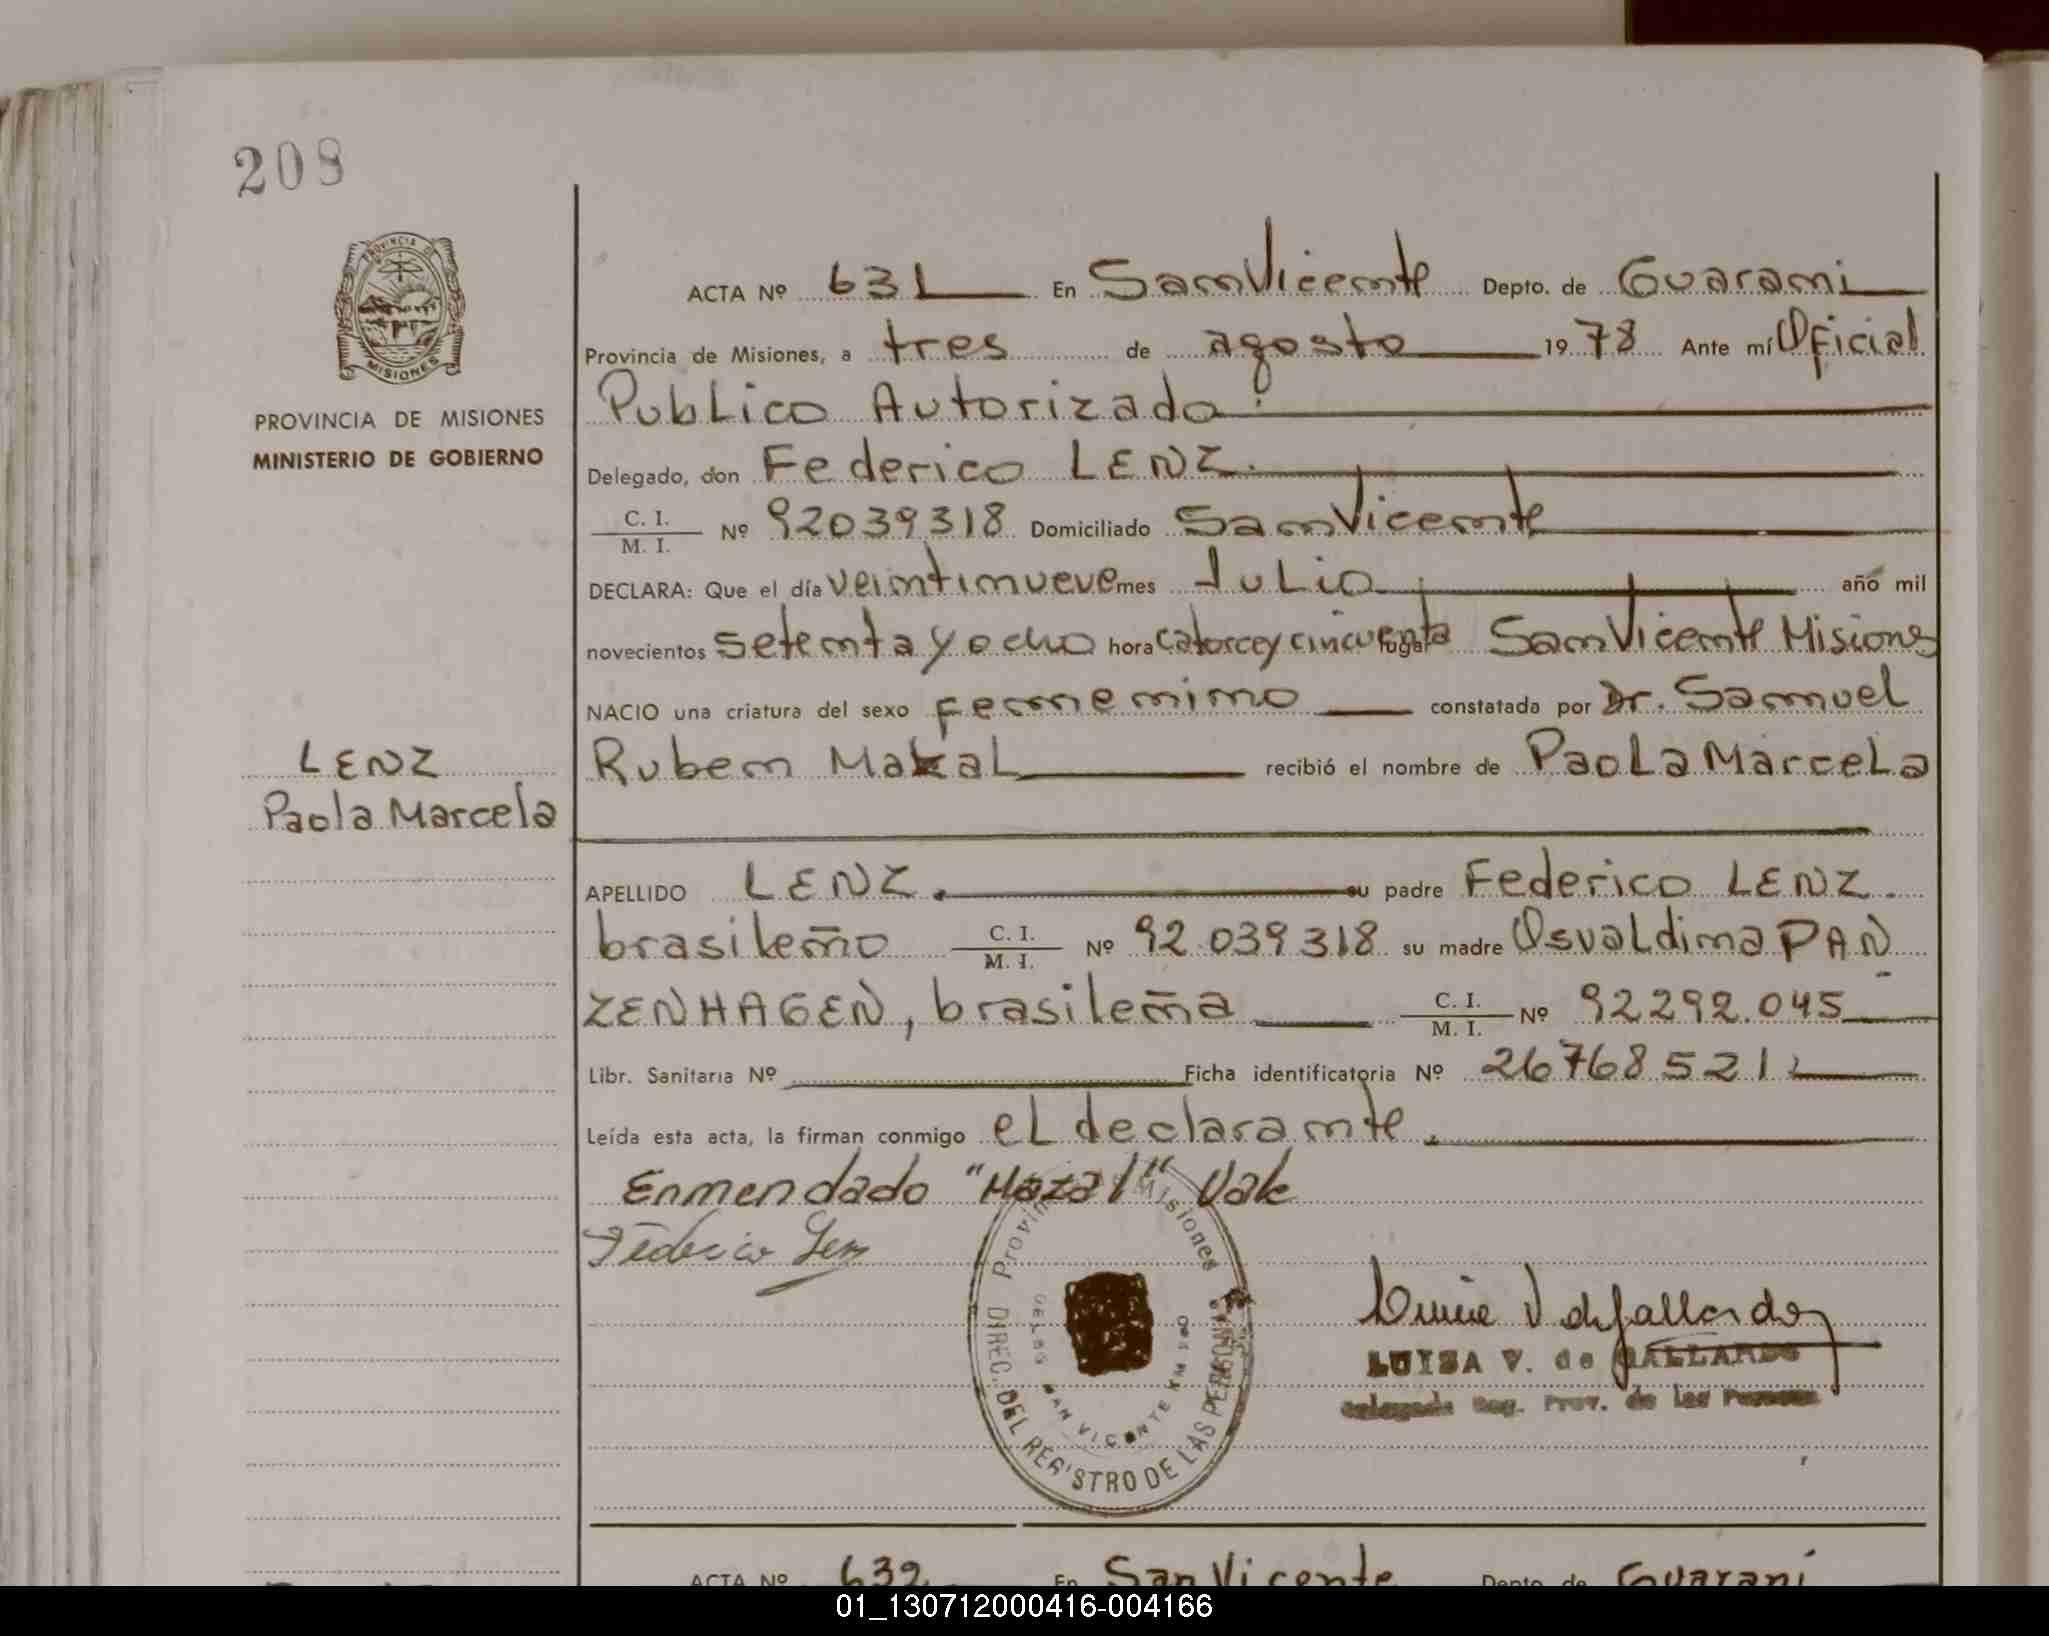 208
PROVINCIA DE
MISIONES
PROVINCIA DE MISIONES
MINISTERIO DE GOBIERNO
LENZ
Paola Marcela
ACTA Nº 631 En San Vicente Depto. de Guarani
Provincia de Misiones, a tres de agosto 1978 Ante mí Oficial
Publico Autorizado.
Delegado, don Federico LENZ.
C. I. / M. I. Nº 92039318 Domiciliado San Vicente
DECLARA: Que el día veintinueve mes Julio año mil
novecientos setenta y ocho hora catorce y cincuenta lugar San Vicente Misiones
NACIO una criatura del sexo femenino constatada por Dr. Samuel
Ruben Mazal recibió el nombre de Paola Marcela
APELLIDO LENZ. su padre Federico LENZ.
brasileño C. I. / M. I. Nº 92.039.318 su madre Osvaldina PAN
ZENHAGEN, brasileña C. I. / M. I. Nº 92292.045
Libr. Sanitaria Nº Ficha identificatoria Nº 26768521
Leída esta acta, la firman conmigo el declarante.
Enmendado "Mazal" Vale
Federico Lenz
Provincia Misiones
DIREC. DEL REGISTRO DE LAS PERSONAS
SAN VICENTE
Luisa V de Gallardo
LUISA V. de GALLARDO
Delegada Reg. Prov. de las Personas
ACTA Nº 632 En San Vicente Depto. de Guaraní
01_130712000416-004166